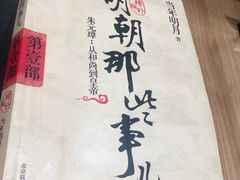 当年明月 著
明朝那些事儿
朱元璋：从和尚到皇帝
第壹部